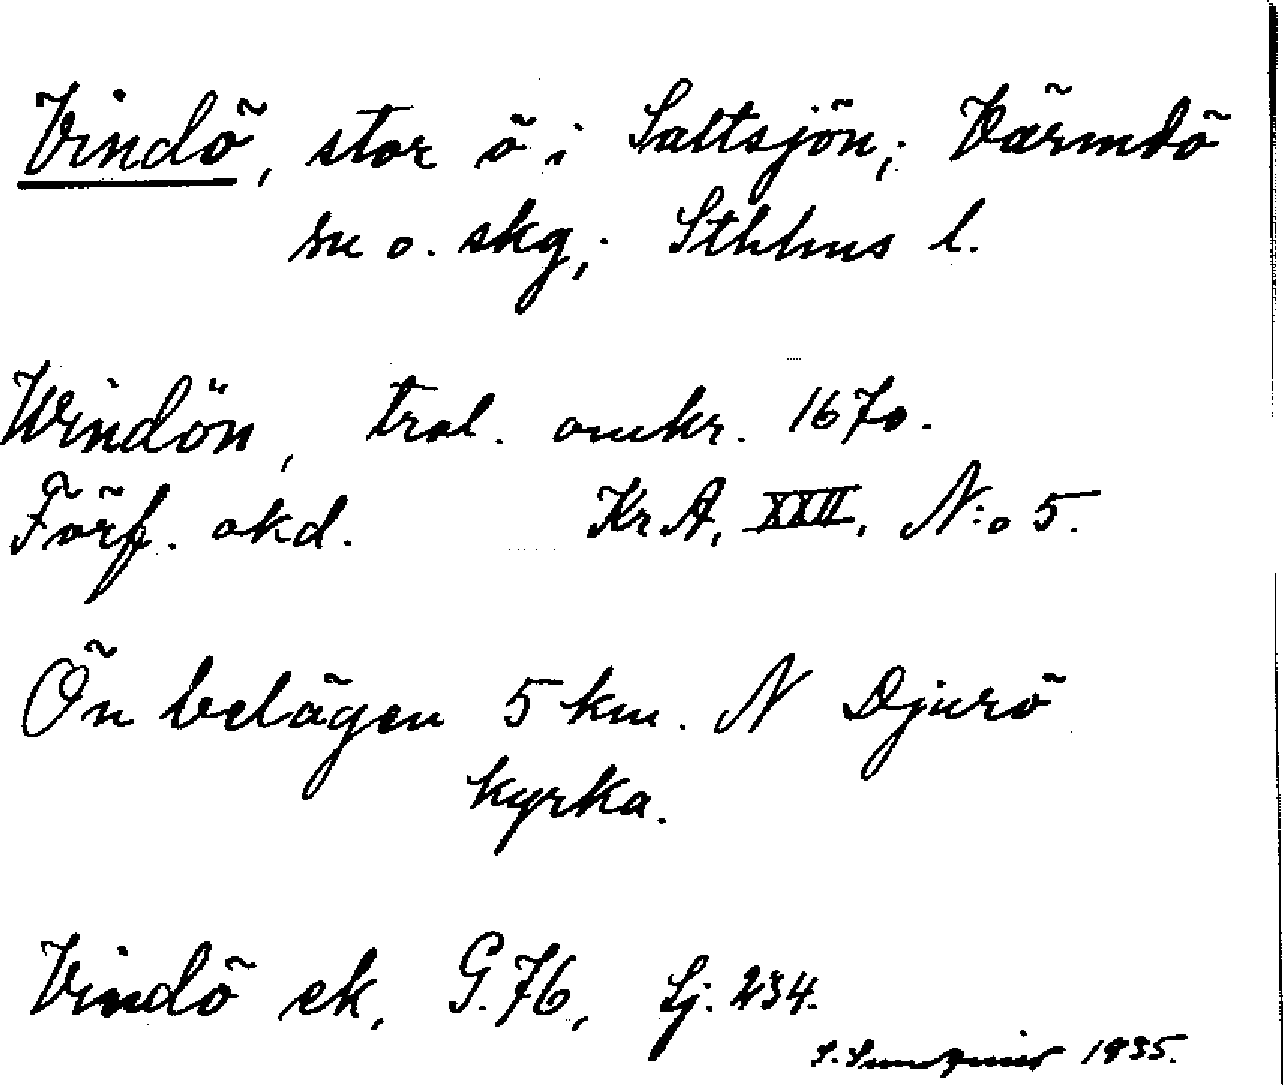 Vindö, stor ö i Saltsjön; Värmdö
sn o. skg; Sthlms l.
Windön, trol. omkr. 1670.
Förf. okd. KrA, XXII, N:o 5.
Ön belägen 5 km. N Djurö
kyrka.
Vindö ek. G. 76, Lj. 234.
1935.